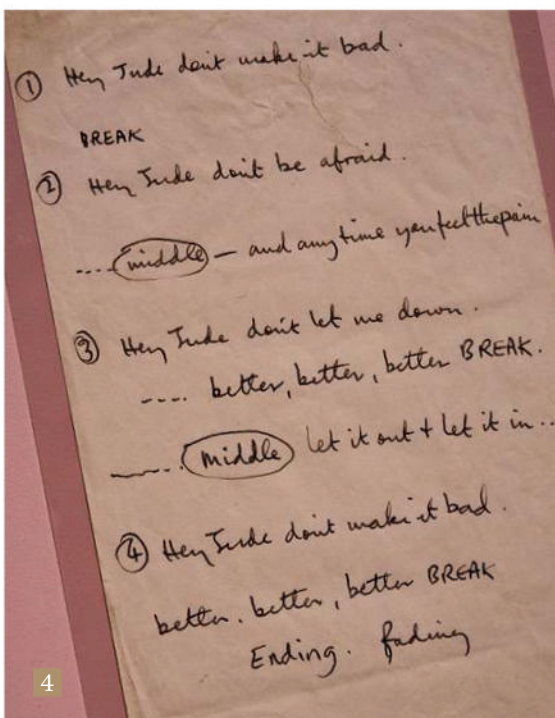 ① Hey Jude don't make it bad.
BREAK
② Hey Jude don't be afraid.
.... middle — and any time you feel the pain
③ Hey Jude don't let me down.
.... better, better, better BREAK.
....... middle let it out + let it in ..
④ Hey Jude don't make it bad.
better. better, better BREAK
Ending. fading
4